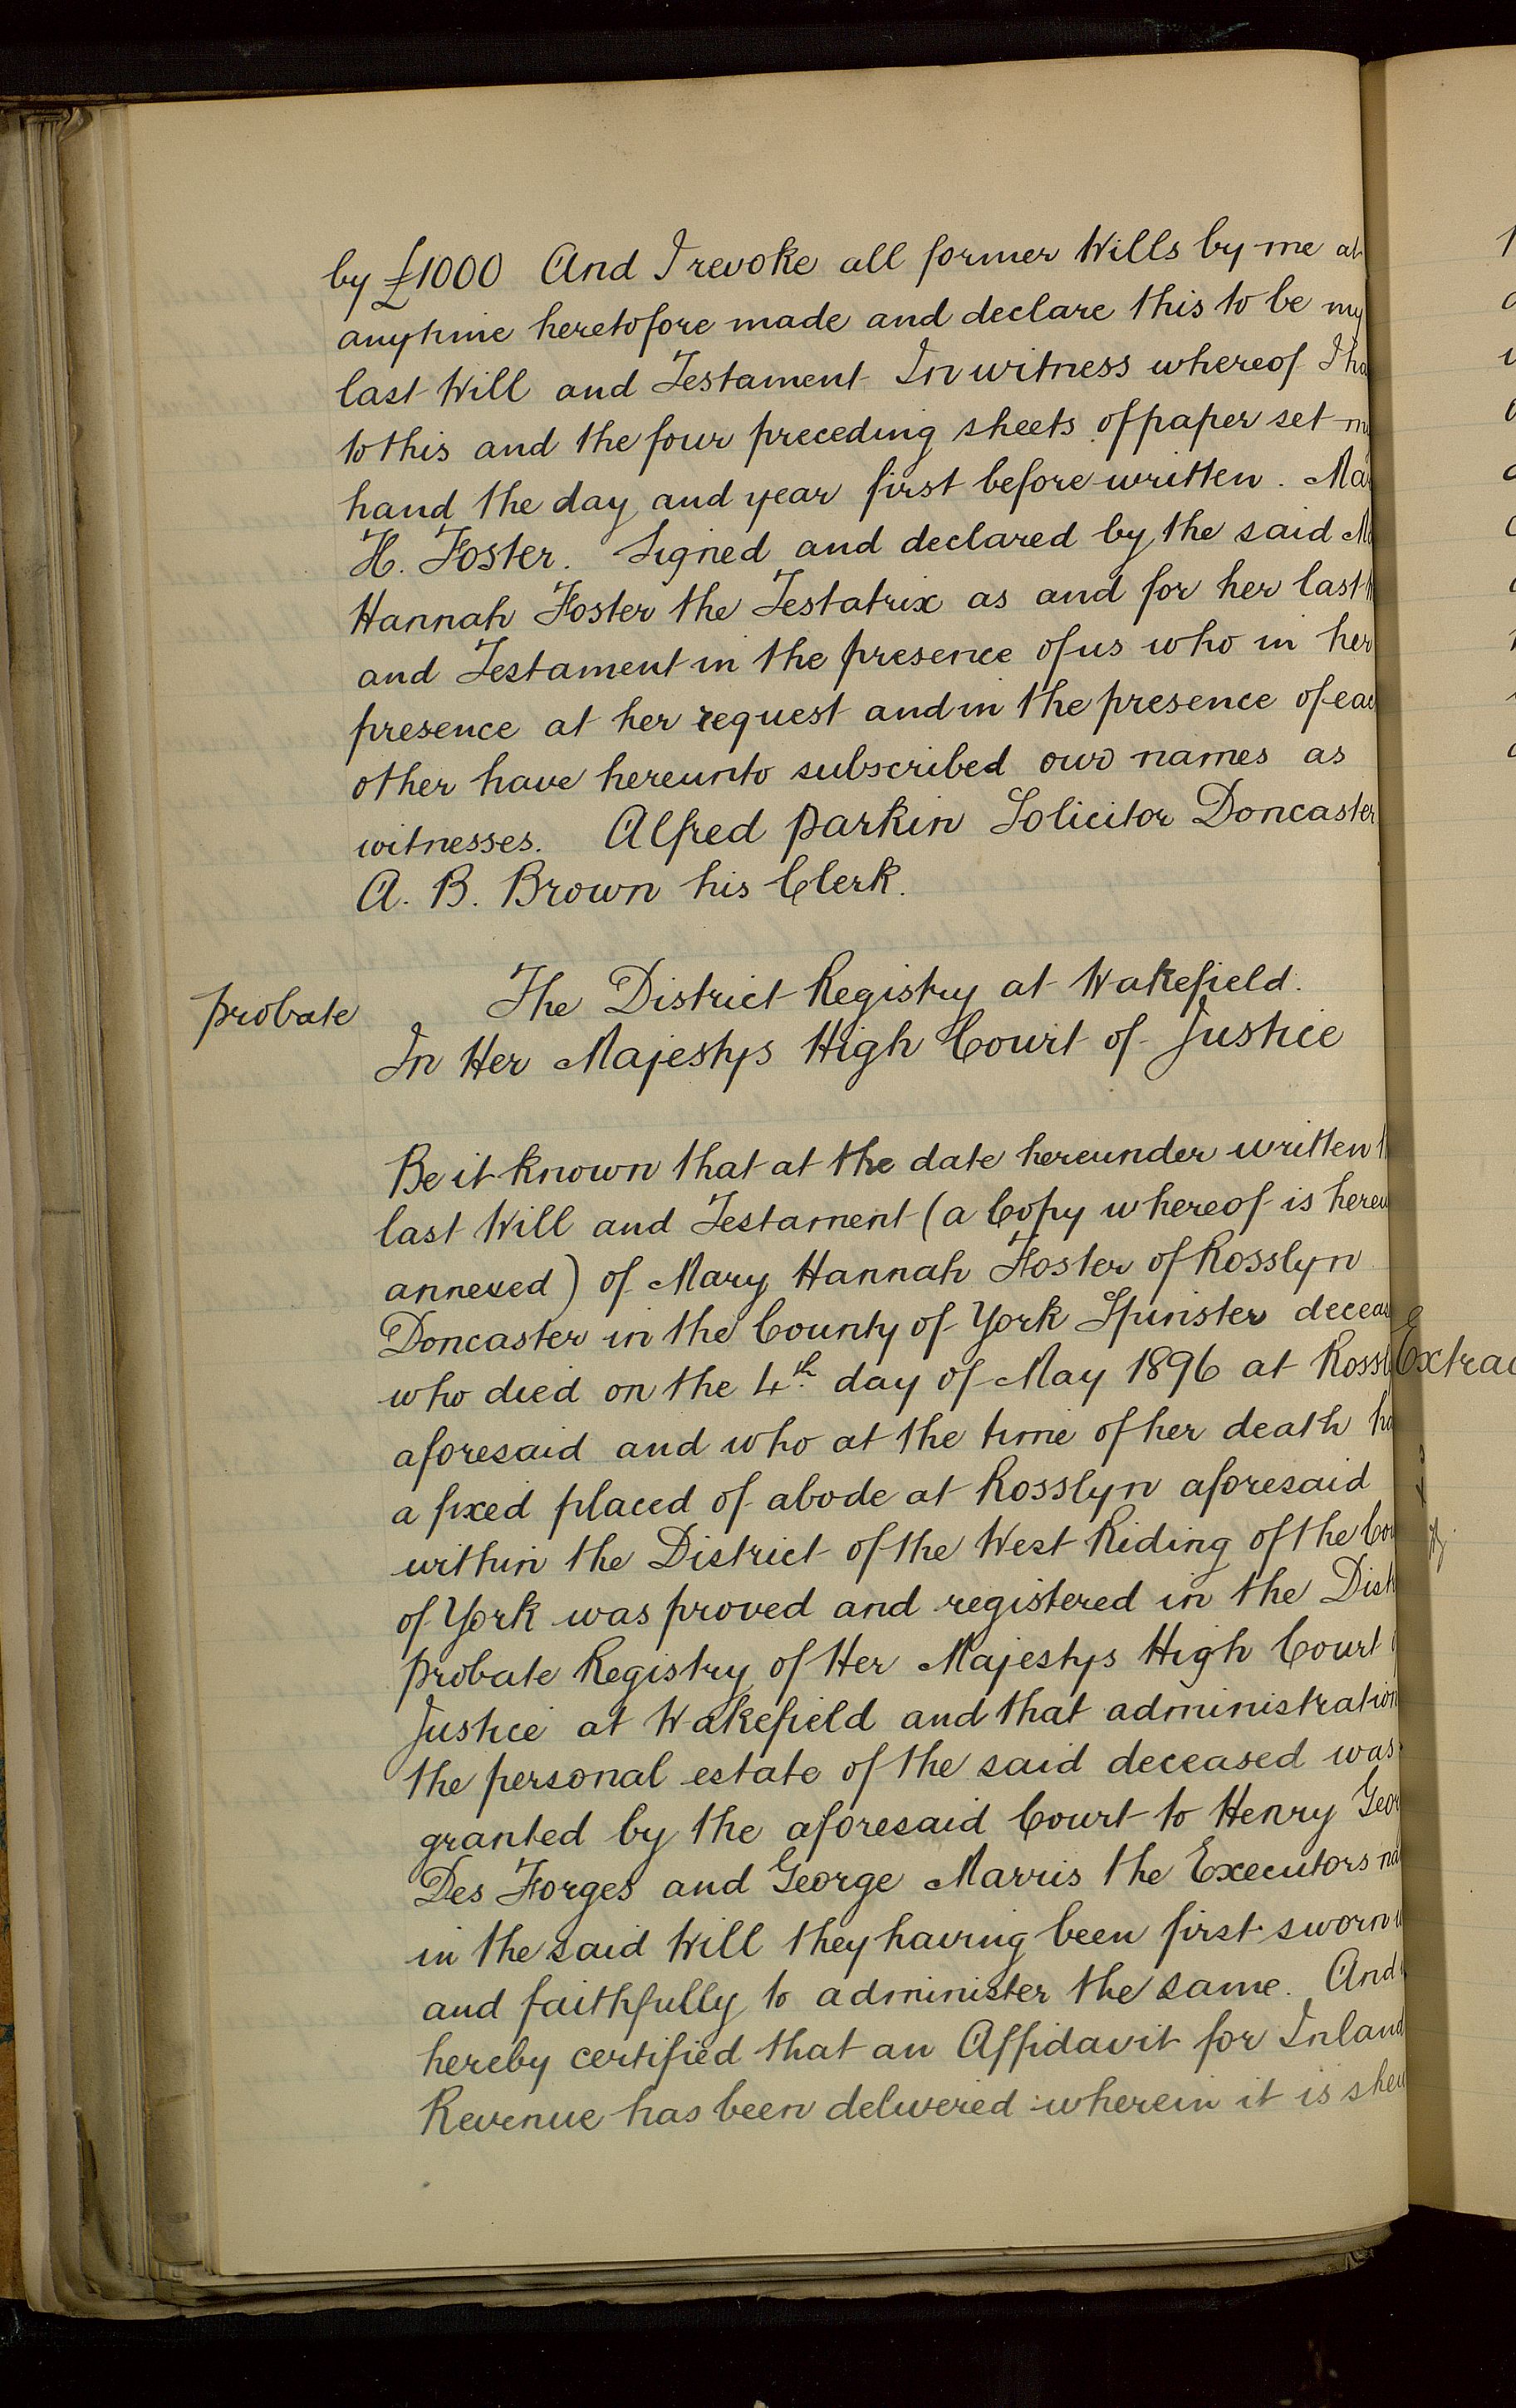 by £1000 And I revoke all former Wills by me at
anytime heretofore made and declare this to be my
last Will and Testament In witness whereof I ha
to this and the four preceding sheets of paper set m
hand the day and year first before written. Ma
H. Foster. Signed and declared by the said M
Hannah Foster the Testatrix as and for her last
and Testament in the presence of us who in her
presence at her request and in the presence of eac
other have hereunto subscribed our names as
witnesses. Alfred Parkin Solicitor Doncaster
A. B. Brown his Clerk.
Probate
The District Registry at Wakefield.
In Her Majestys High Court of Justice
Be it known that at the date hereunder written
last Will and Testament (a Copy whereof is hereu
annexed) of Mary Hannah Foster of Rosslyn
Doncaster in the County of York Spinster deceas
who died on the 4th day of May 1896 at Rossl
aforesaid and who at the time of her death ha
a fixed placed of abode at Rosslyn aforesaid
within the District of the West Riding of the Cou
of York was proved and registered in the Dist
Probate Registry of Her Majestys High Court
Justice at Wakefield and that administration
the personal estate of the said deceased was
granted by the aforesaid Court to Henry Geor
Des Forges and George Marris the Executors na
in the said Will they having been first sworn
and faithfully to administer the same. And
hereby certified that an Affidavit for Inland
Revenue has been delivered wherein it is shew
Extrac